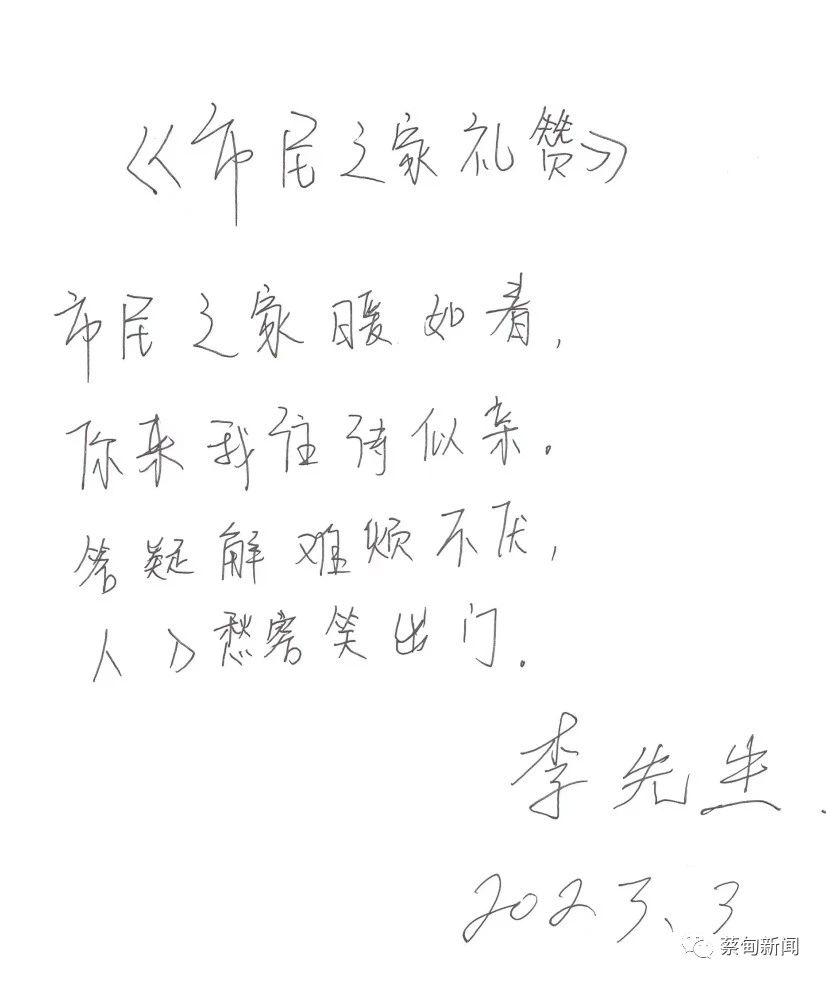 《市民之家礼赞》
市民之家暖如春,
你来我往待似亲.
答疑解难烦不厌,
人々愁容笑出门.
李先生.
2023、3
蔡甸新闻